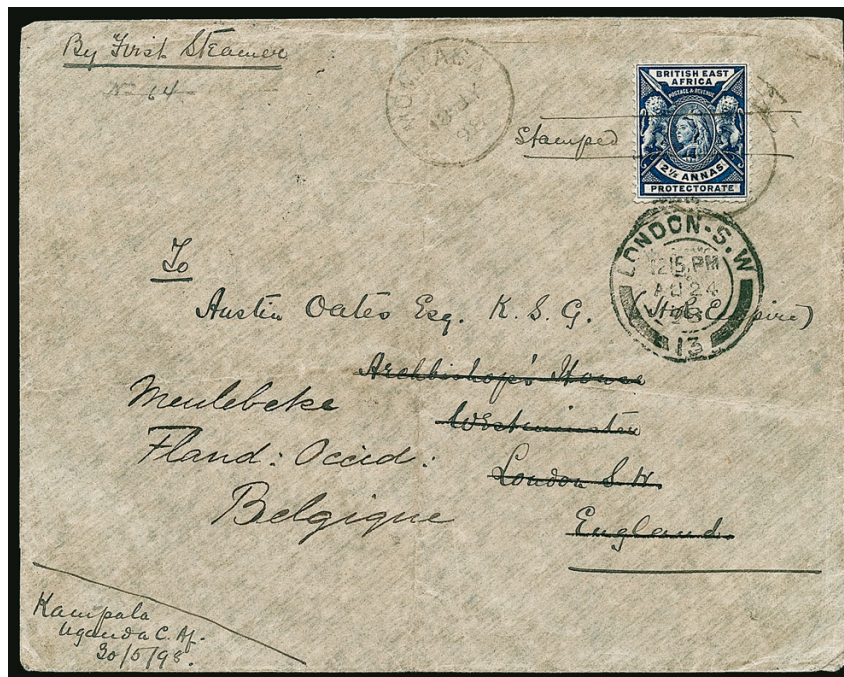 By First Steamer
No 64
BRITISH EAST
AFRICA
POSTAGE & REVENUE
2½ ANNAS
PROTECTORATE
Stamped
LONDON.S.W
12.15.PM
AU 24
98
13
To
Austin Oates Esq. K. S. G. (H. R. Empire)
Archbishop's House
Westminster
London S. W.
England.
Meulebeke
Fland: Occid:
Belgique
Kampala
Uganda C. Af.
30/5/98.